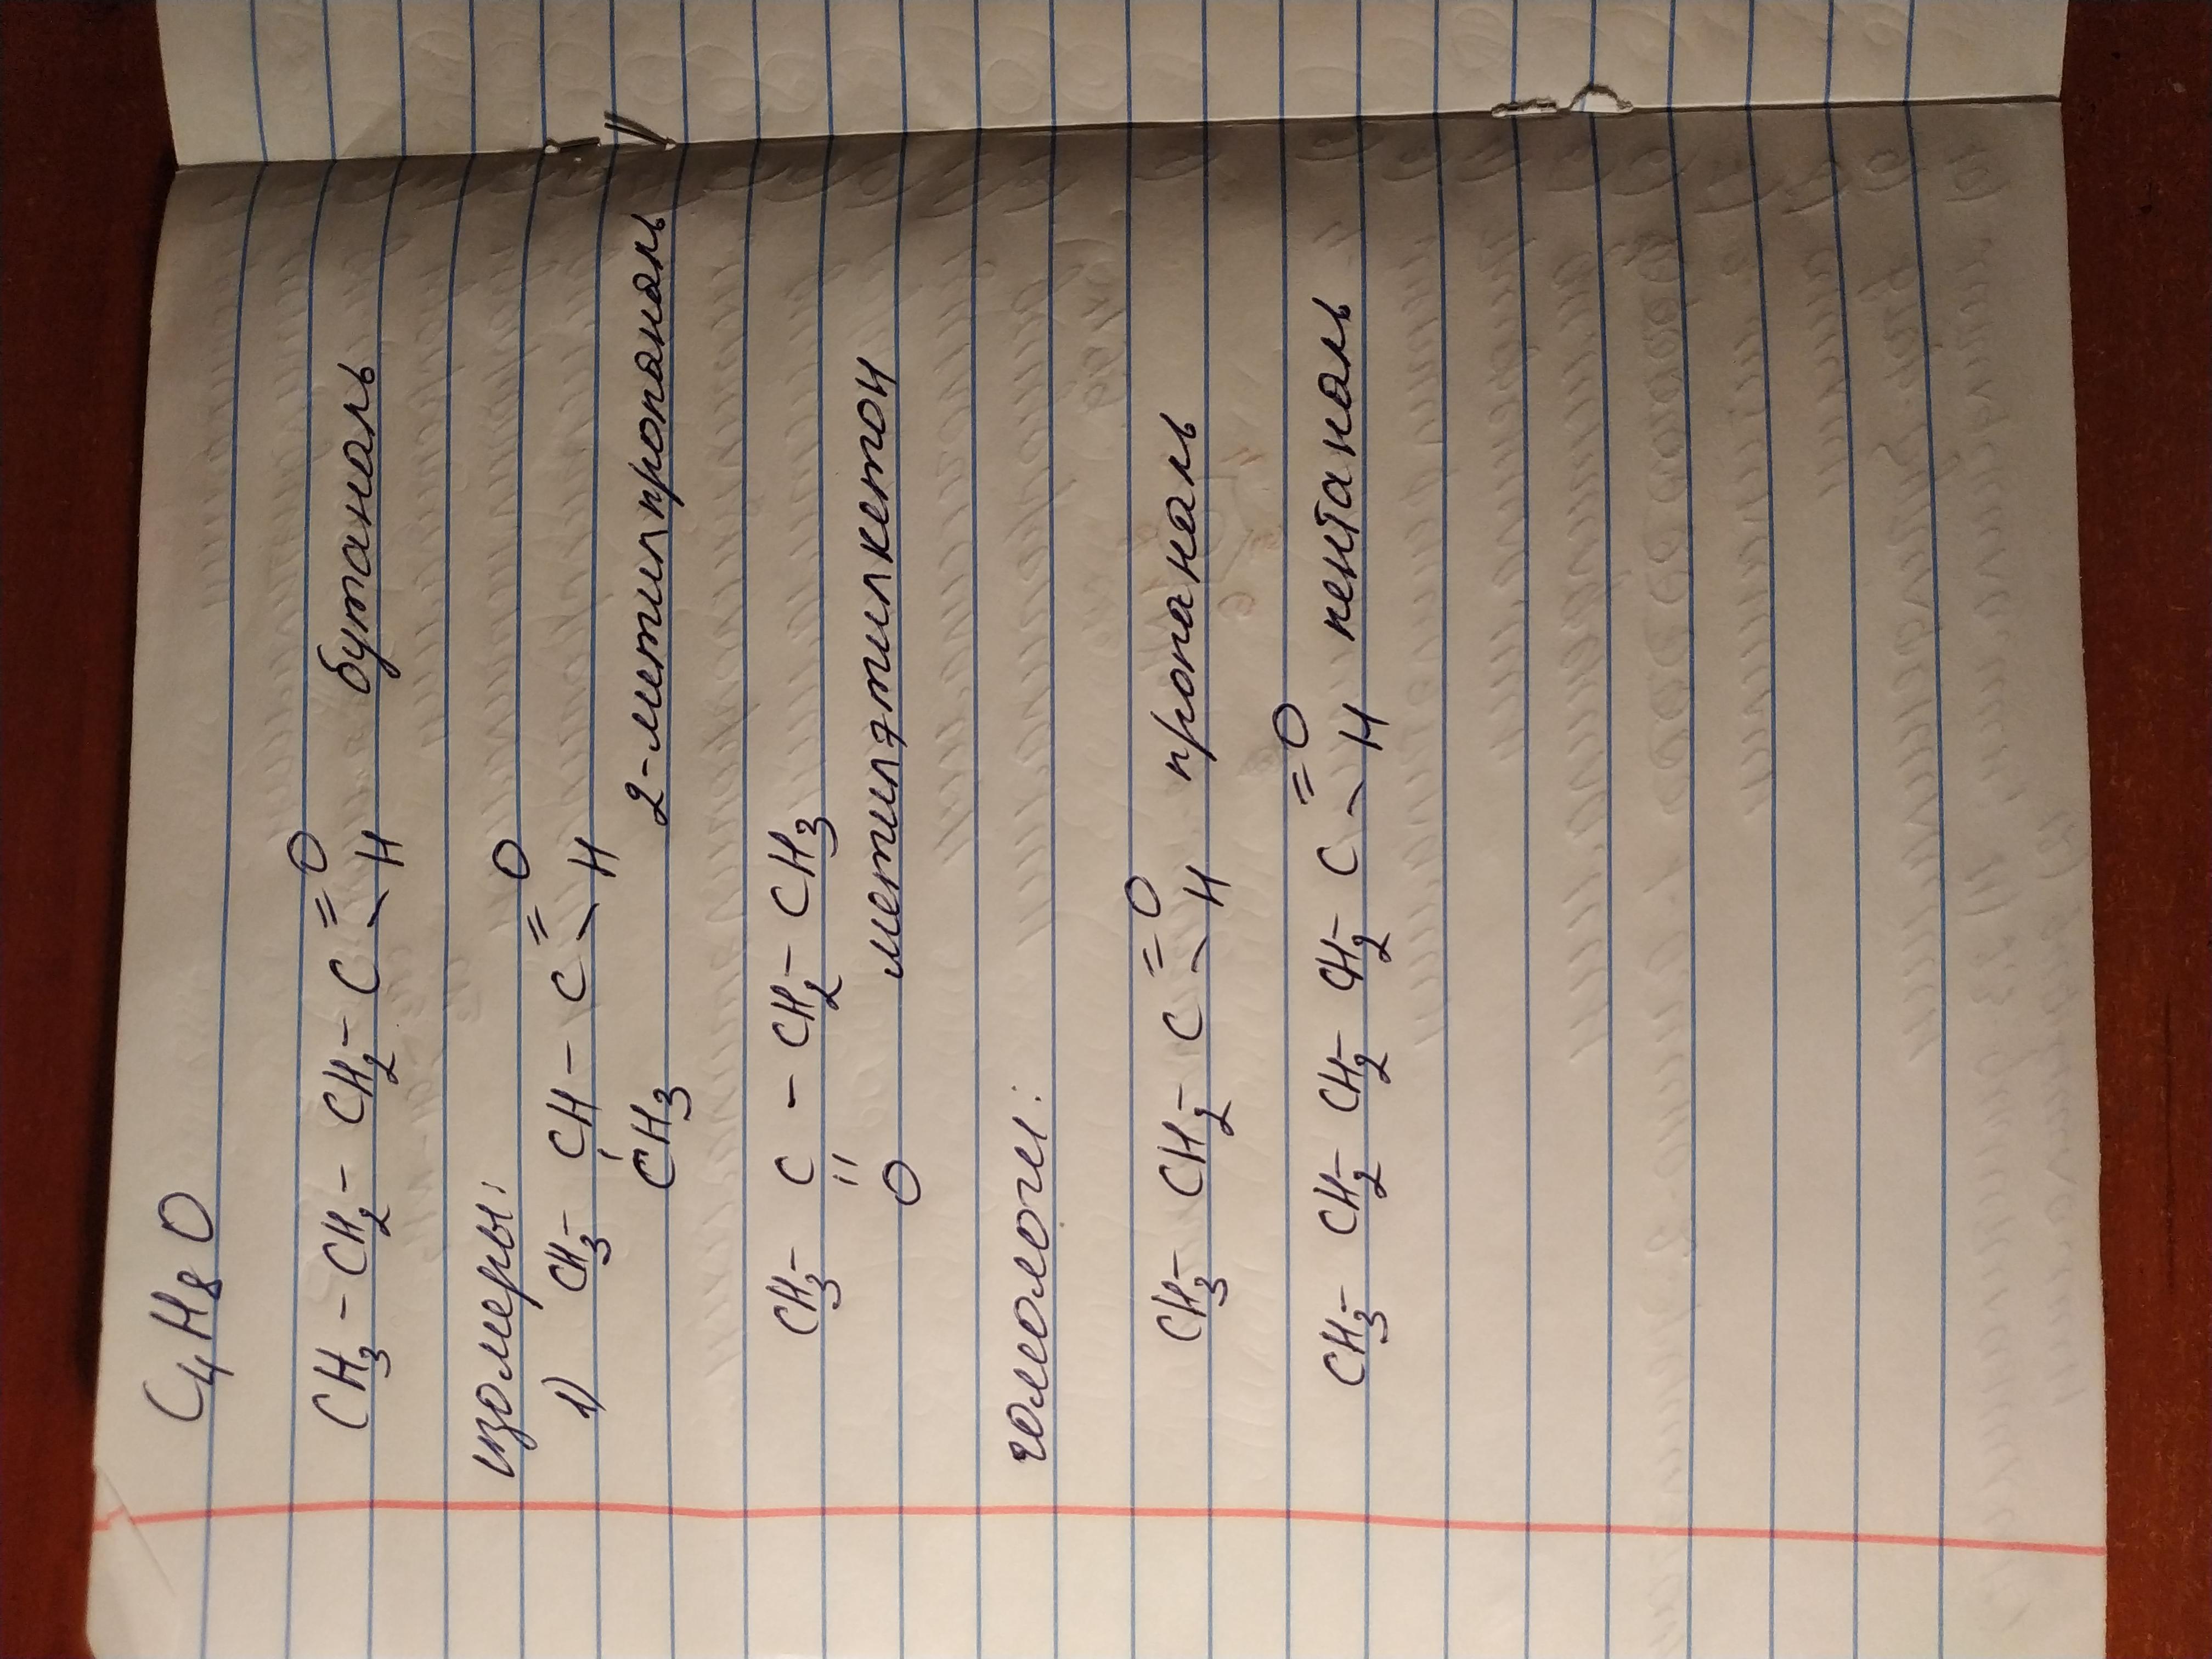 C₄H₈O
CH₃ – CH₂ – CH₂ – C
=O
–H
бутаналь
изомеры:
1) CH₃ – CH – C
=O
–H
CH₃
2-метилпропаналь
CH₃ – C – CH₂ – CH₃
=
O
метилэтилкетон
гомологи:
CH₃ – CH₂ – C
=O
–H
пропаналь
CH₃ – CH₂ – CH₂ – CH₂ – C
=O
–H
пентаналь